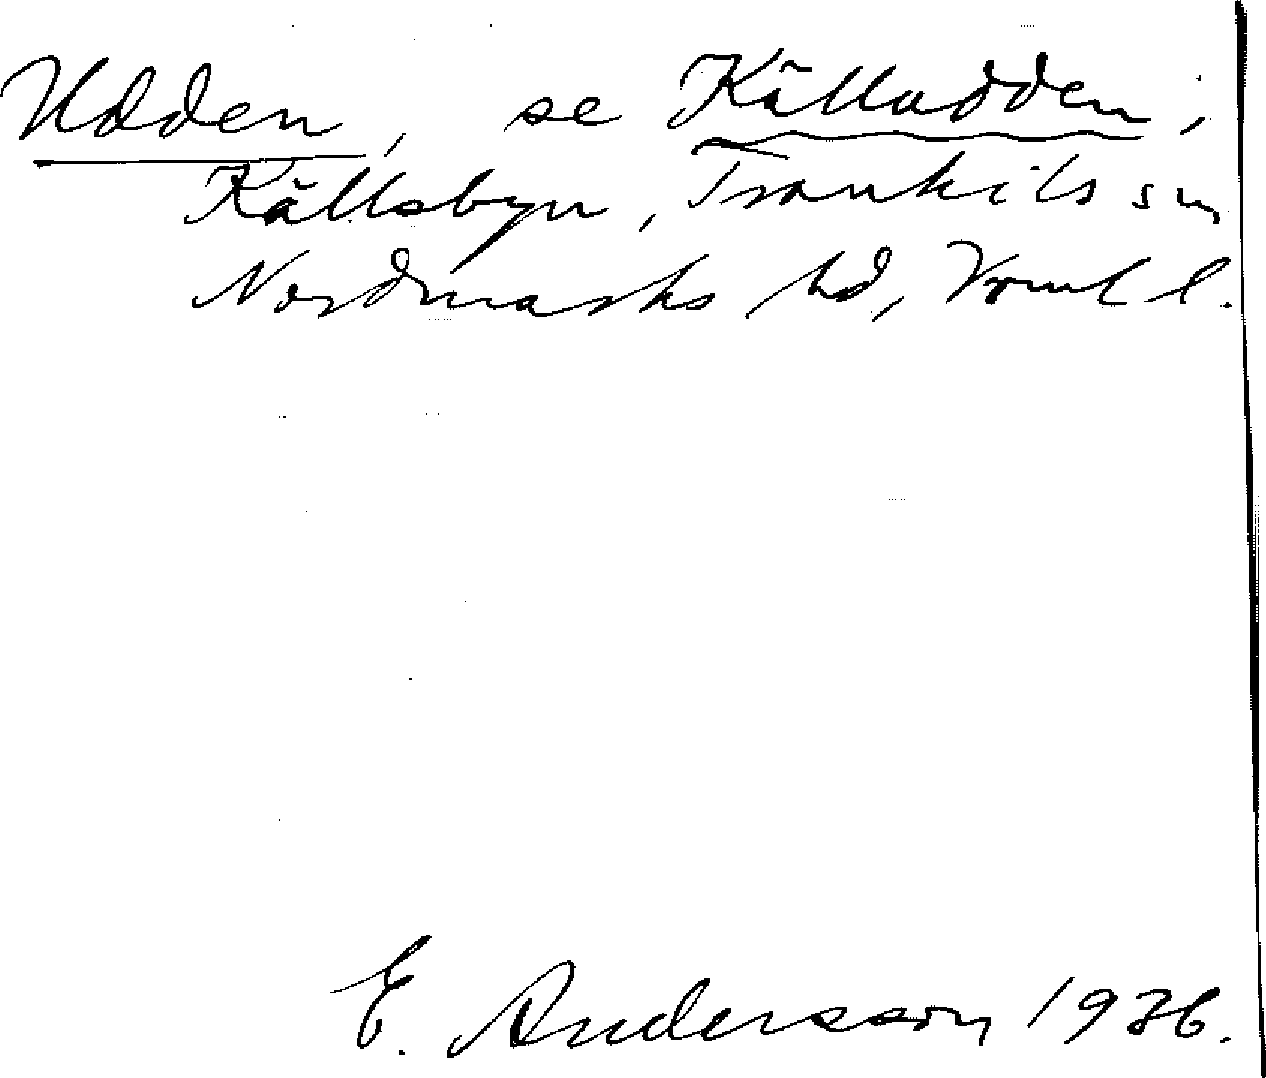 Udden, se Källudden,
Källsbyn, Trankils sn,
Nordmarks hd, Vrml l.
E. Andersson 1936.